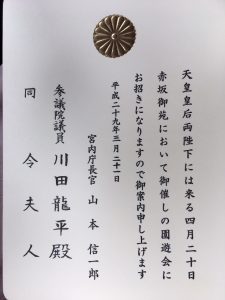 天皇皇后両陛下には来る四月二十日
赤坂御苑において御催しの園遊会に
お招きになりますので御案内申し上げます
平成二十九年三月二十一日
宮内庁長官 山本信一郎
参議院議員 川田龍平殿
同令夫人